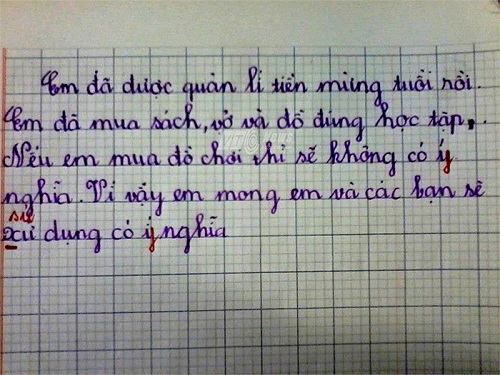 Em đã được quản lí tiền mừng tuổi rồi.
Em đã mua sách, vở và đồ dùng học tập.
Nếu em mua đồ chơi thì sẽ không có ý
nghĩa. Vì vậy em mong em và các bạn sẽ
sử
xử dụng có ý nghĩa